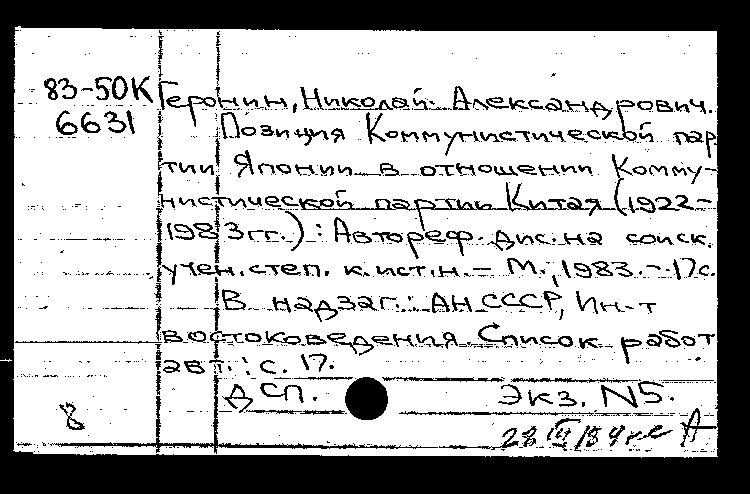 83-50К Геронин, Николай Александрович.
6631 Позиция Коммунистической пар
тии Японии в отношении Комму-
нистической партии Китая (1922-
1983гг.) : Автореф. дис. на соиск.
учен. степ. к. ист. н. – М., 1983. – 17с.
В надзаг.: АН СССР, Ин-т
востоковедения. Список работ
авт.: с. 17.
ДСП. Экз. N5.
8
28